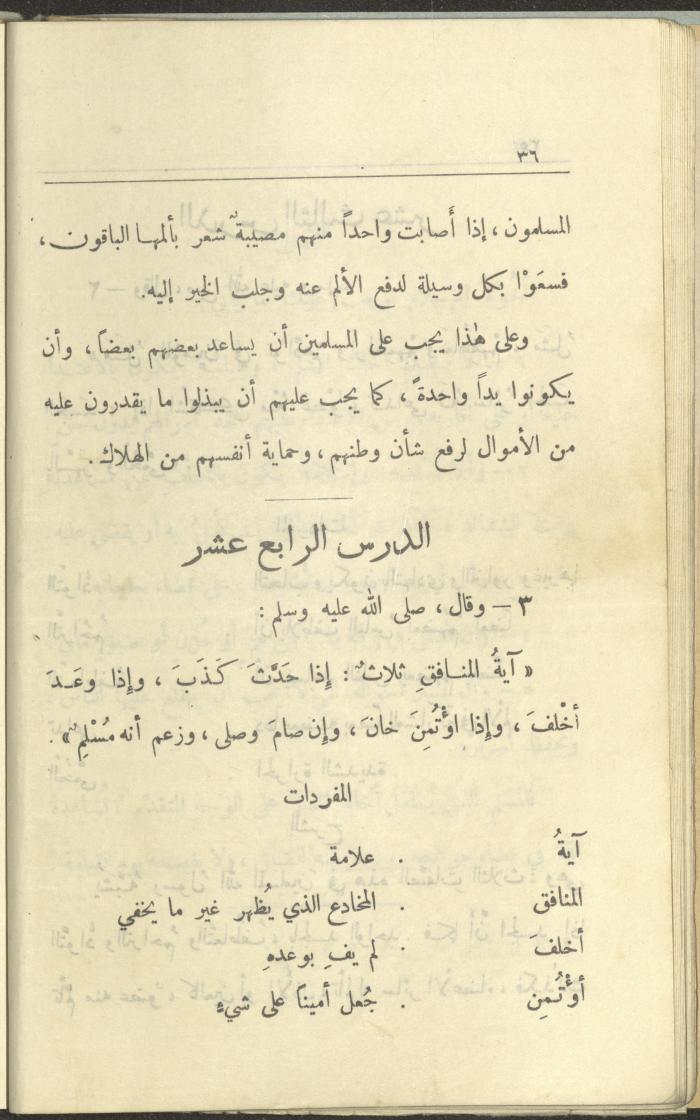 ٣٦
المسلمون، إذا أَصابت واحداً منهم مصيبةٌ شعر بألمها الباقون،
فسعَوْا بكل وسيلة لدفع الألم عنه وجلب الخير إليه.
وعلى هٰذا يجب على المسلمين أن يساعد بعضهم بعضاً، وأن
يكونوا يداً واحدةً، كما يجب عليهم أن يبذلوا ما يقدرون عليه
من الأموال لرفع شأن وطنهم، وحماية أنفسهم من الهلاك.
الدرس الرابع عشر
٣ — وقال، صلى الله عليه وسلم:
« آيةُ المنافقِ ثلاثٌ: إِذا حَدَّثَ كَذَبَ، وإِذا وعَدَ
أخْلفَ، وإِذا اؤْتُمِنَ خانَ، وإِن صامَ وصلى، وزعم أنه مُسْلِمٌ».
المفردات
آيةُ . علامة
المنافق . المخادع الذي يُظهر غير ما يخفي
أخلفَ . لم يفِ بوعدهِ
أوْتُمِن . جُعل أميناً على شيءٍ